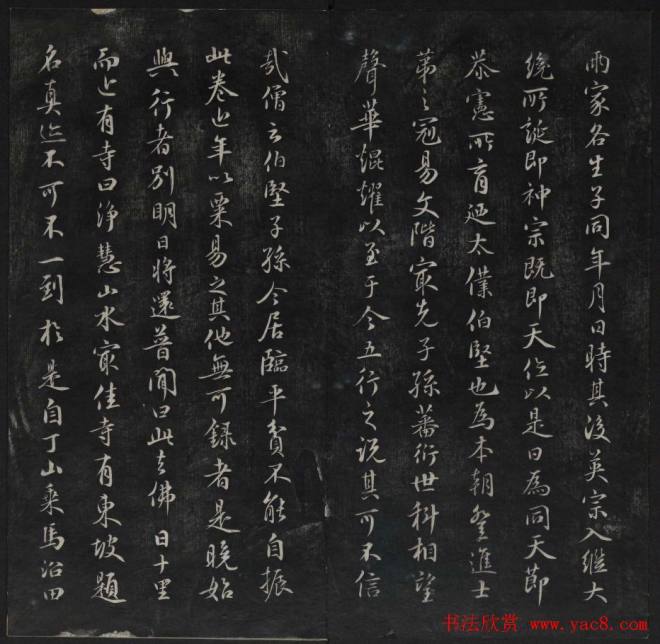 兩家各生子同年月日時其後英宗入繼大
統所誕即神宗既即天位以是日為同天節
恭憲所育迺太僕伯堅也為本朝登進士
第之冠易文階最先子孫蕃衍世科相望
聲華焜燿以至于今五行之說其可不信
哉僧云伯堅子孫今居臨平貧不能自振
此卷近年以粟易之其他無可錄者是晚始
與行者別明日將還普聞曰此去佛日十里
而近有寺曰淨慧山水最佳寺有東坡題
名真迹不可不一到於是自丁山乘馬沿田
书法欣赏 www.yac8.com